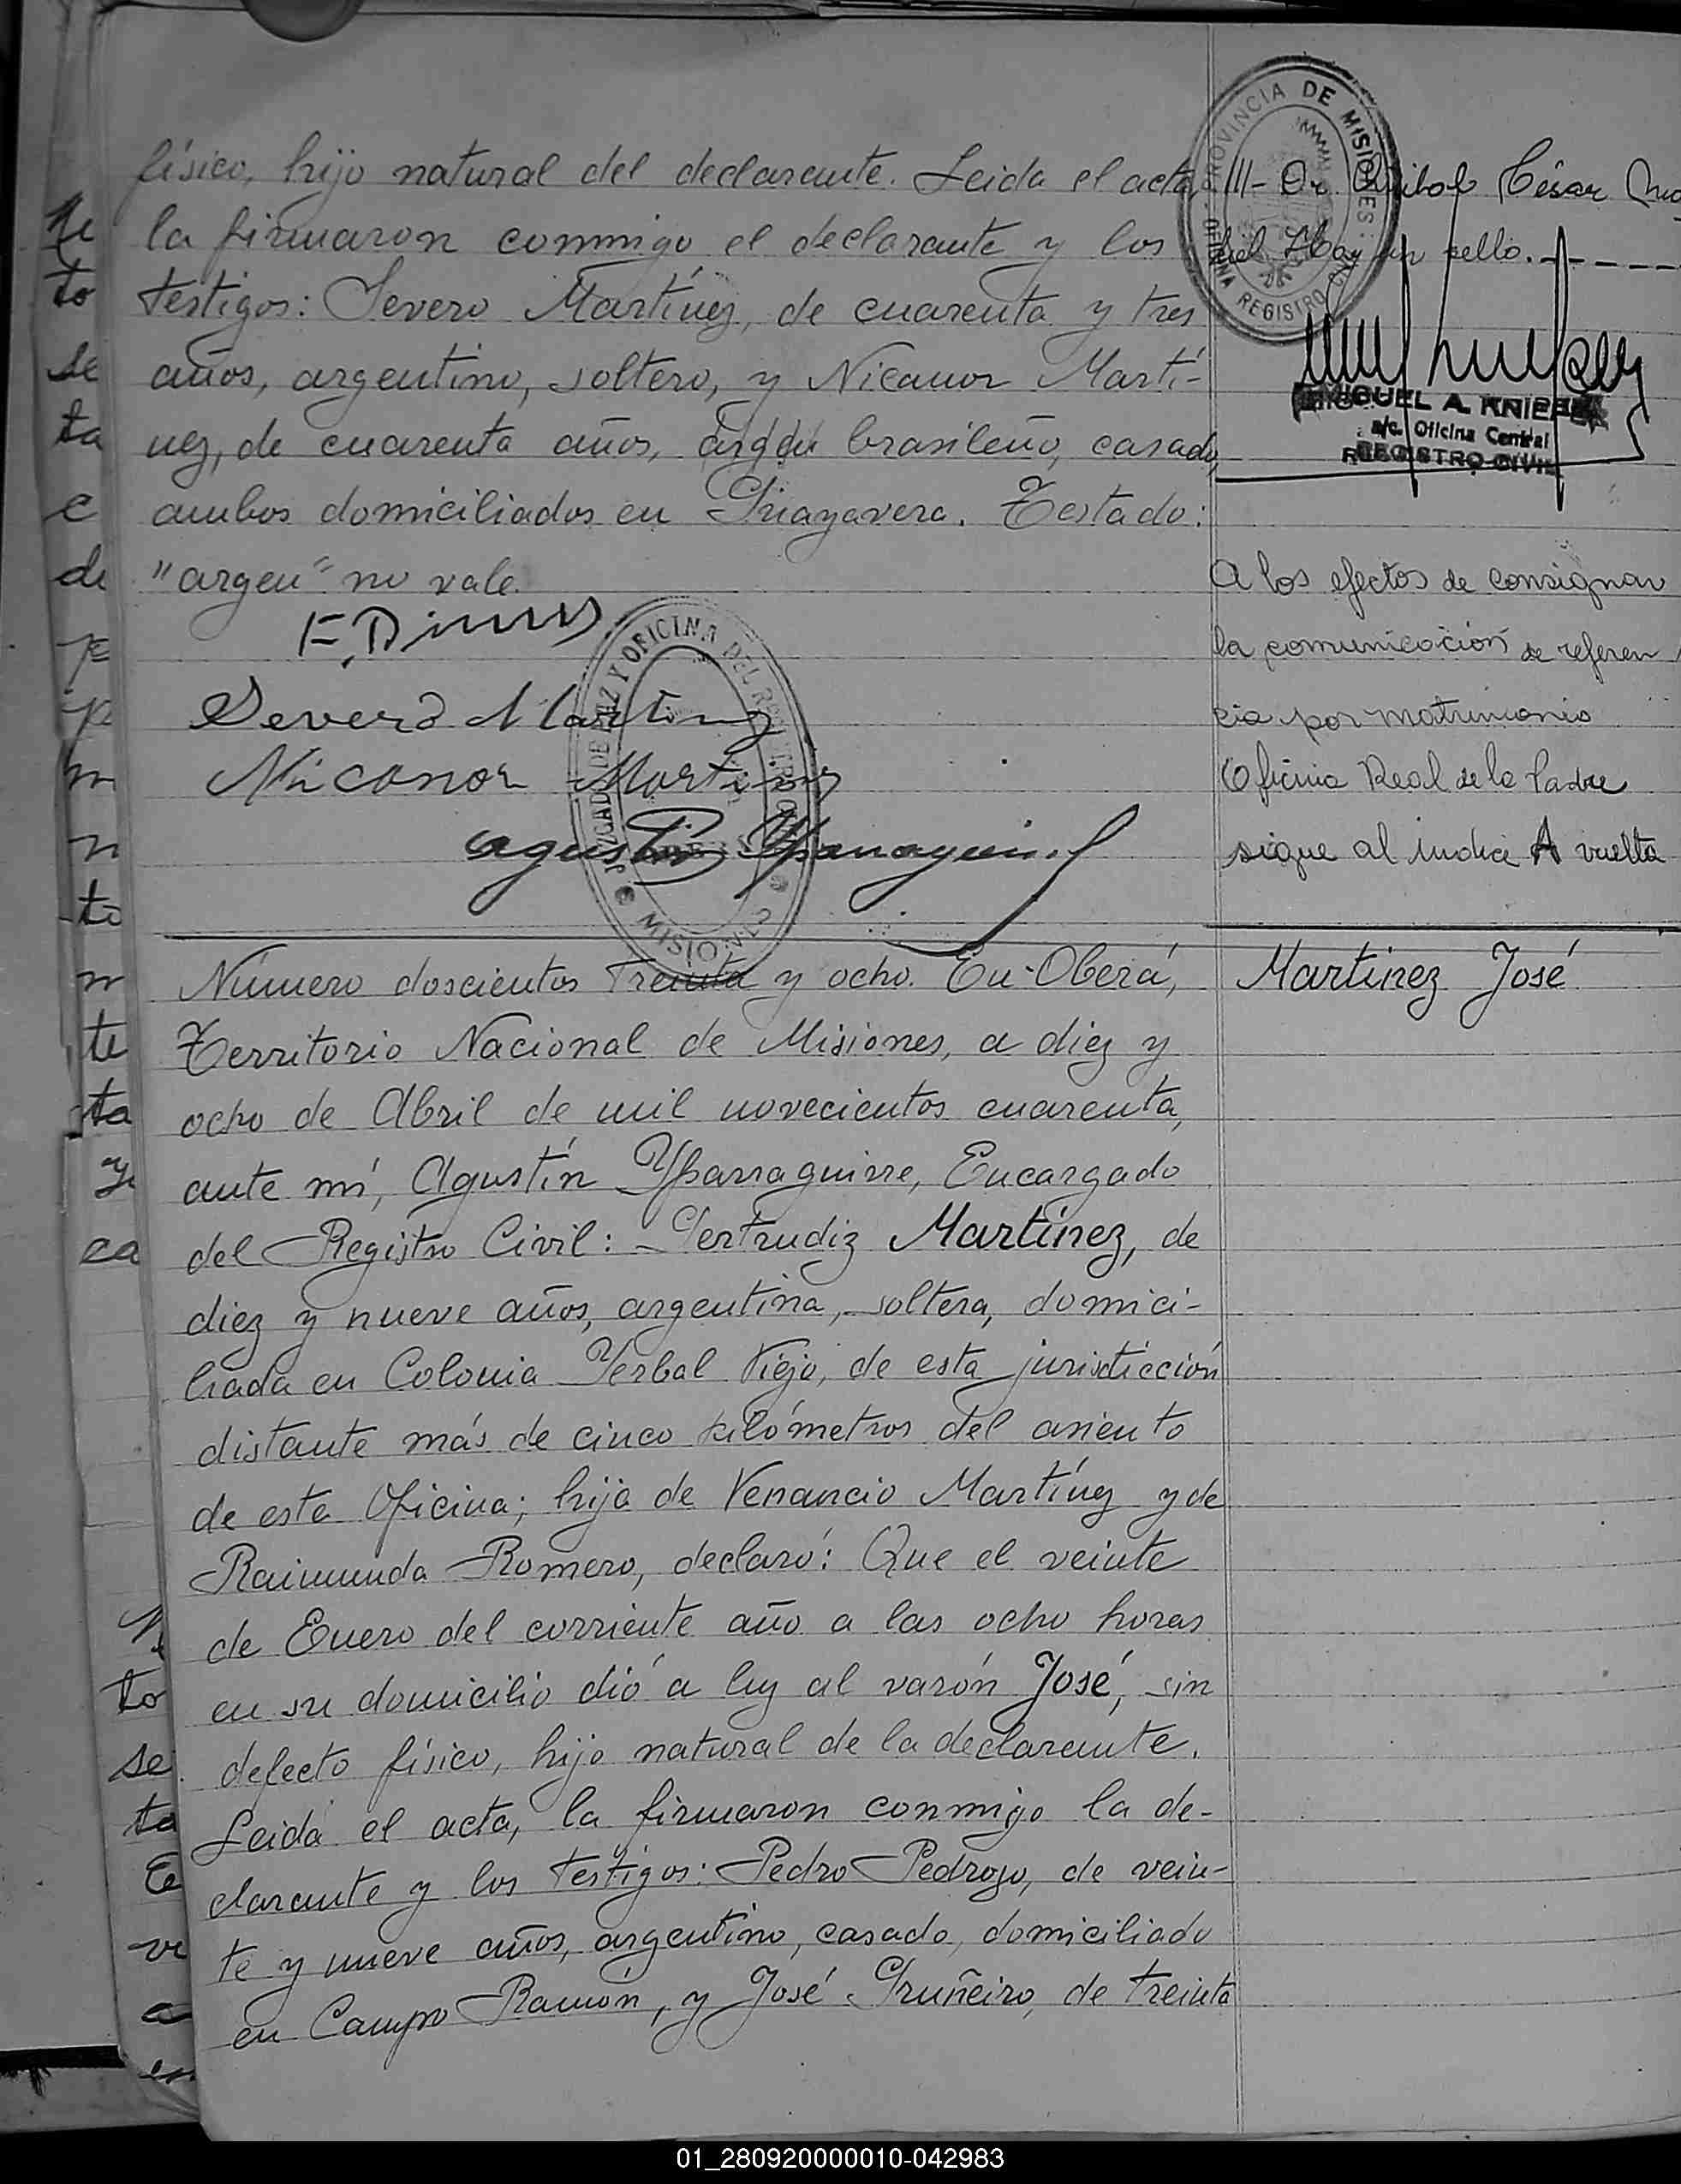 físico, hijo natural del declarante. Leida el acta,
la firmaron conmigo el declarante y los
testigos: Severo Martínez, de cuarenta y tres
años, argentino, soltero, y Nicanor Martí-
nez, de cuarenta años, argen brasileño, casado,
ambos domiciliados en Guayavera. Testado:
"argen" no vale.
Severo Martinez
Nicanor Martinez
Agustin Yparraguirre
JUZGADO DE PAZ Y OFICINA DEL REGISTRO
MISIONES
Número doscientos treinta y ocho. En Oberá,
Territorio Nacional de Misiones, a diez y
ocho de Abril de mil novecientos cuarenta,
ante mí, Agustín Yparraguirre, Encargado
del Registro Civil: Gertrudiz Martínez, de
diez y nueve años, argentina, soltera, domici-
liada en Colonia Yerbal Viejo, de esta jurisdicción
distante más de cinco kilómetros del asiento
de esta Oficina; hija de Venancio Martínez y de
Raimunda Romero, declaró: Que el veinte
de Enero del corriente año a las ocho horas
en su domicilio dió a luz al varón José, sin
defecto físico, hijo natural de la declarante.
Leida el acta, la firmaron conmigo la de-
clarante y los testigos: Pedro Pedrozo, de vein-
te y nueve años, argentino, casado, domiciliado
en Campo Ramón, y José Gruñeiro, de treinta
PROVINCIA DE MISIONES
OFICINA REGISTRO
III- Dr. César
Hay un sello.
MIGUEL A. KNIPPEL
a/c. Oficina Central
REGISTRO CIVIL
A los efectos de consignar
la comunicación de referen
cia por matrimonio
Oficina Real de la Padre
sigue al indice A vuelta
Martinez José
Ne
to
se
ta
e
de
m
n
te
ta
ca
to
se
ta
01_280920000010-042983